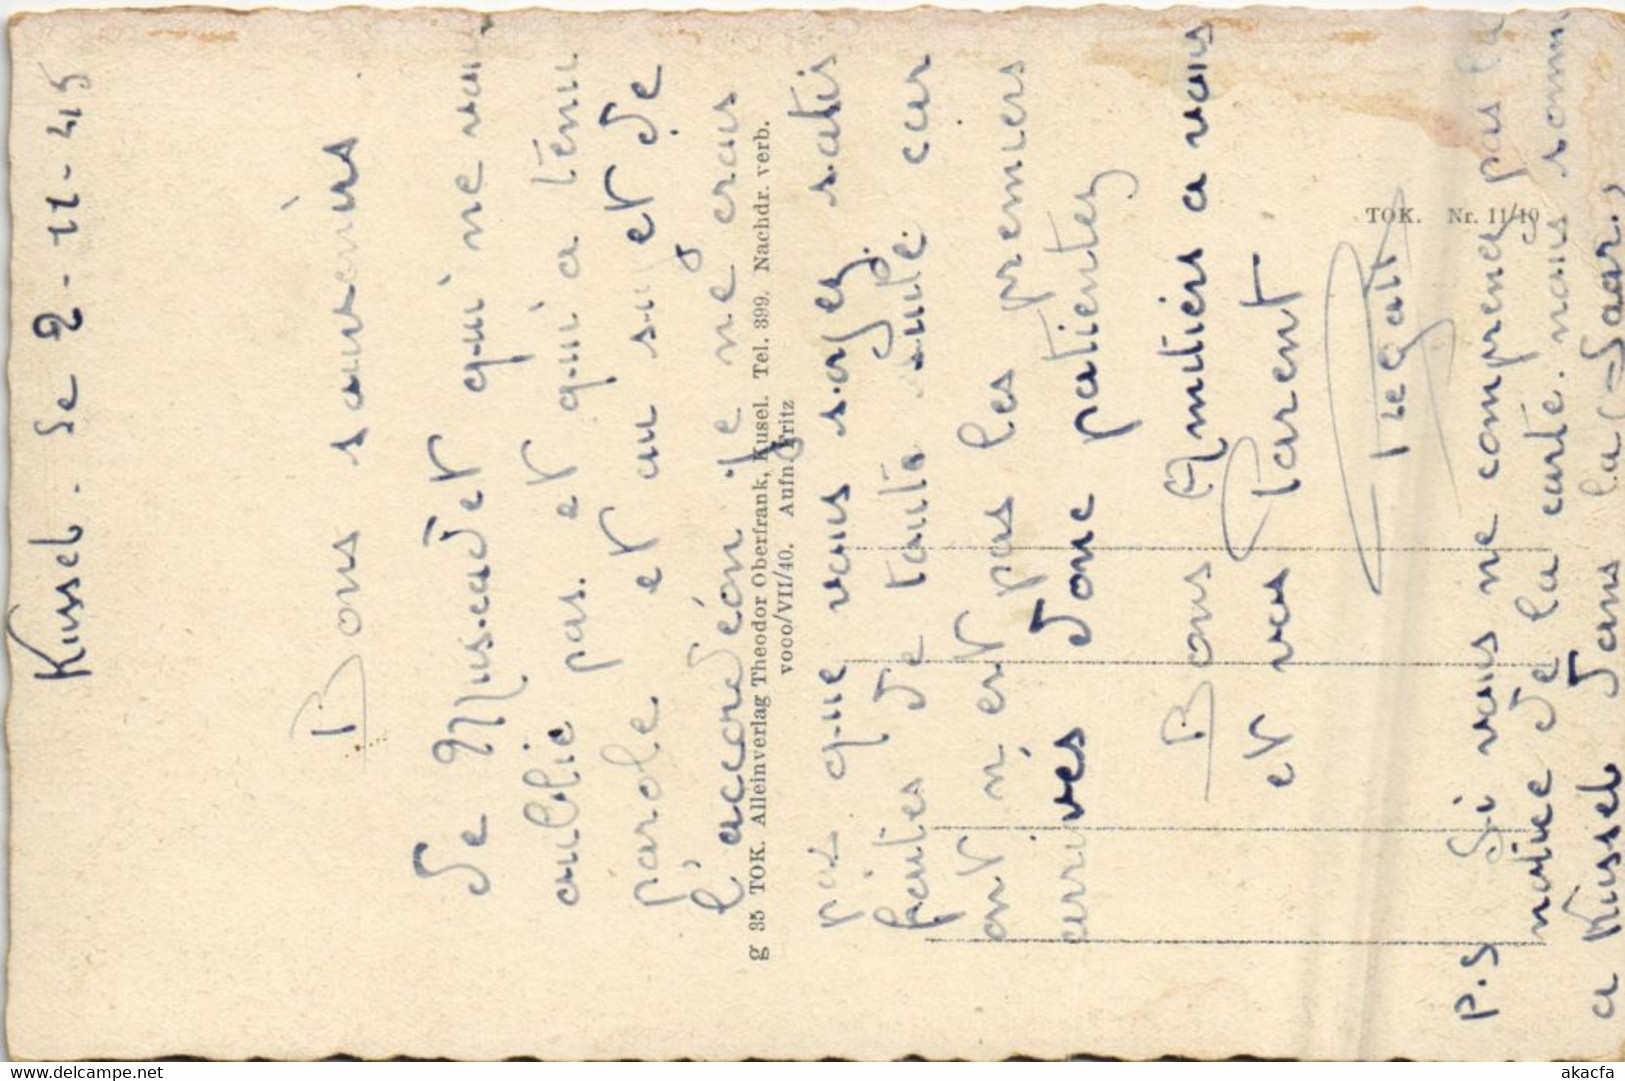 Kusel. le 2-11-45
Bons souvenirs
De Muscadet qui ne vous
oublie pas. et qui a tenu
parole. et au sujet de
l'accordéon je ne crois
pas que vous soyez satis
faites de toute suite car
ont n'ent pas les premiers
arrivés donc patientez
Bons Amitiers a vous
et vos Parent
P.S Si vous ne comprenez pas la
notice de la carte. nous somm
a Kusel dans la Saar.,
g 35 TOK. Alleinverlag Theodor Oberfrank, Kusel. Tel. 399. Nachdr. verb.
voco/VII/40. Aufn. Fritz
TOK. Nr. 11/10
www.delcampe.net
akacfa